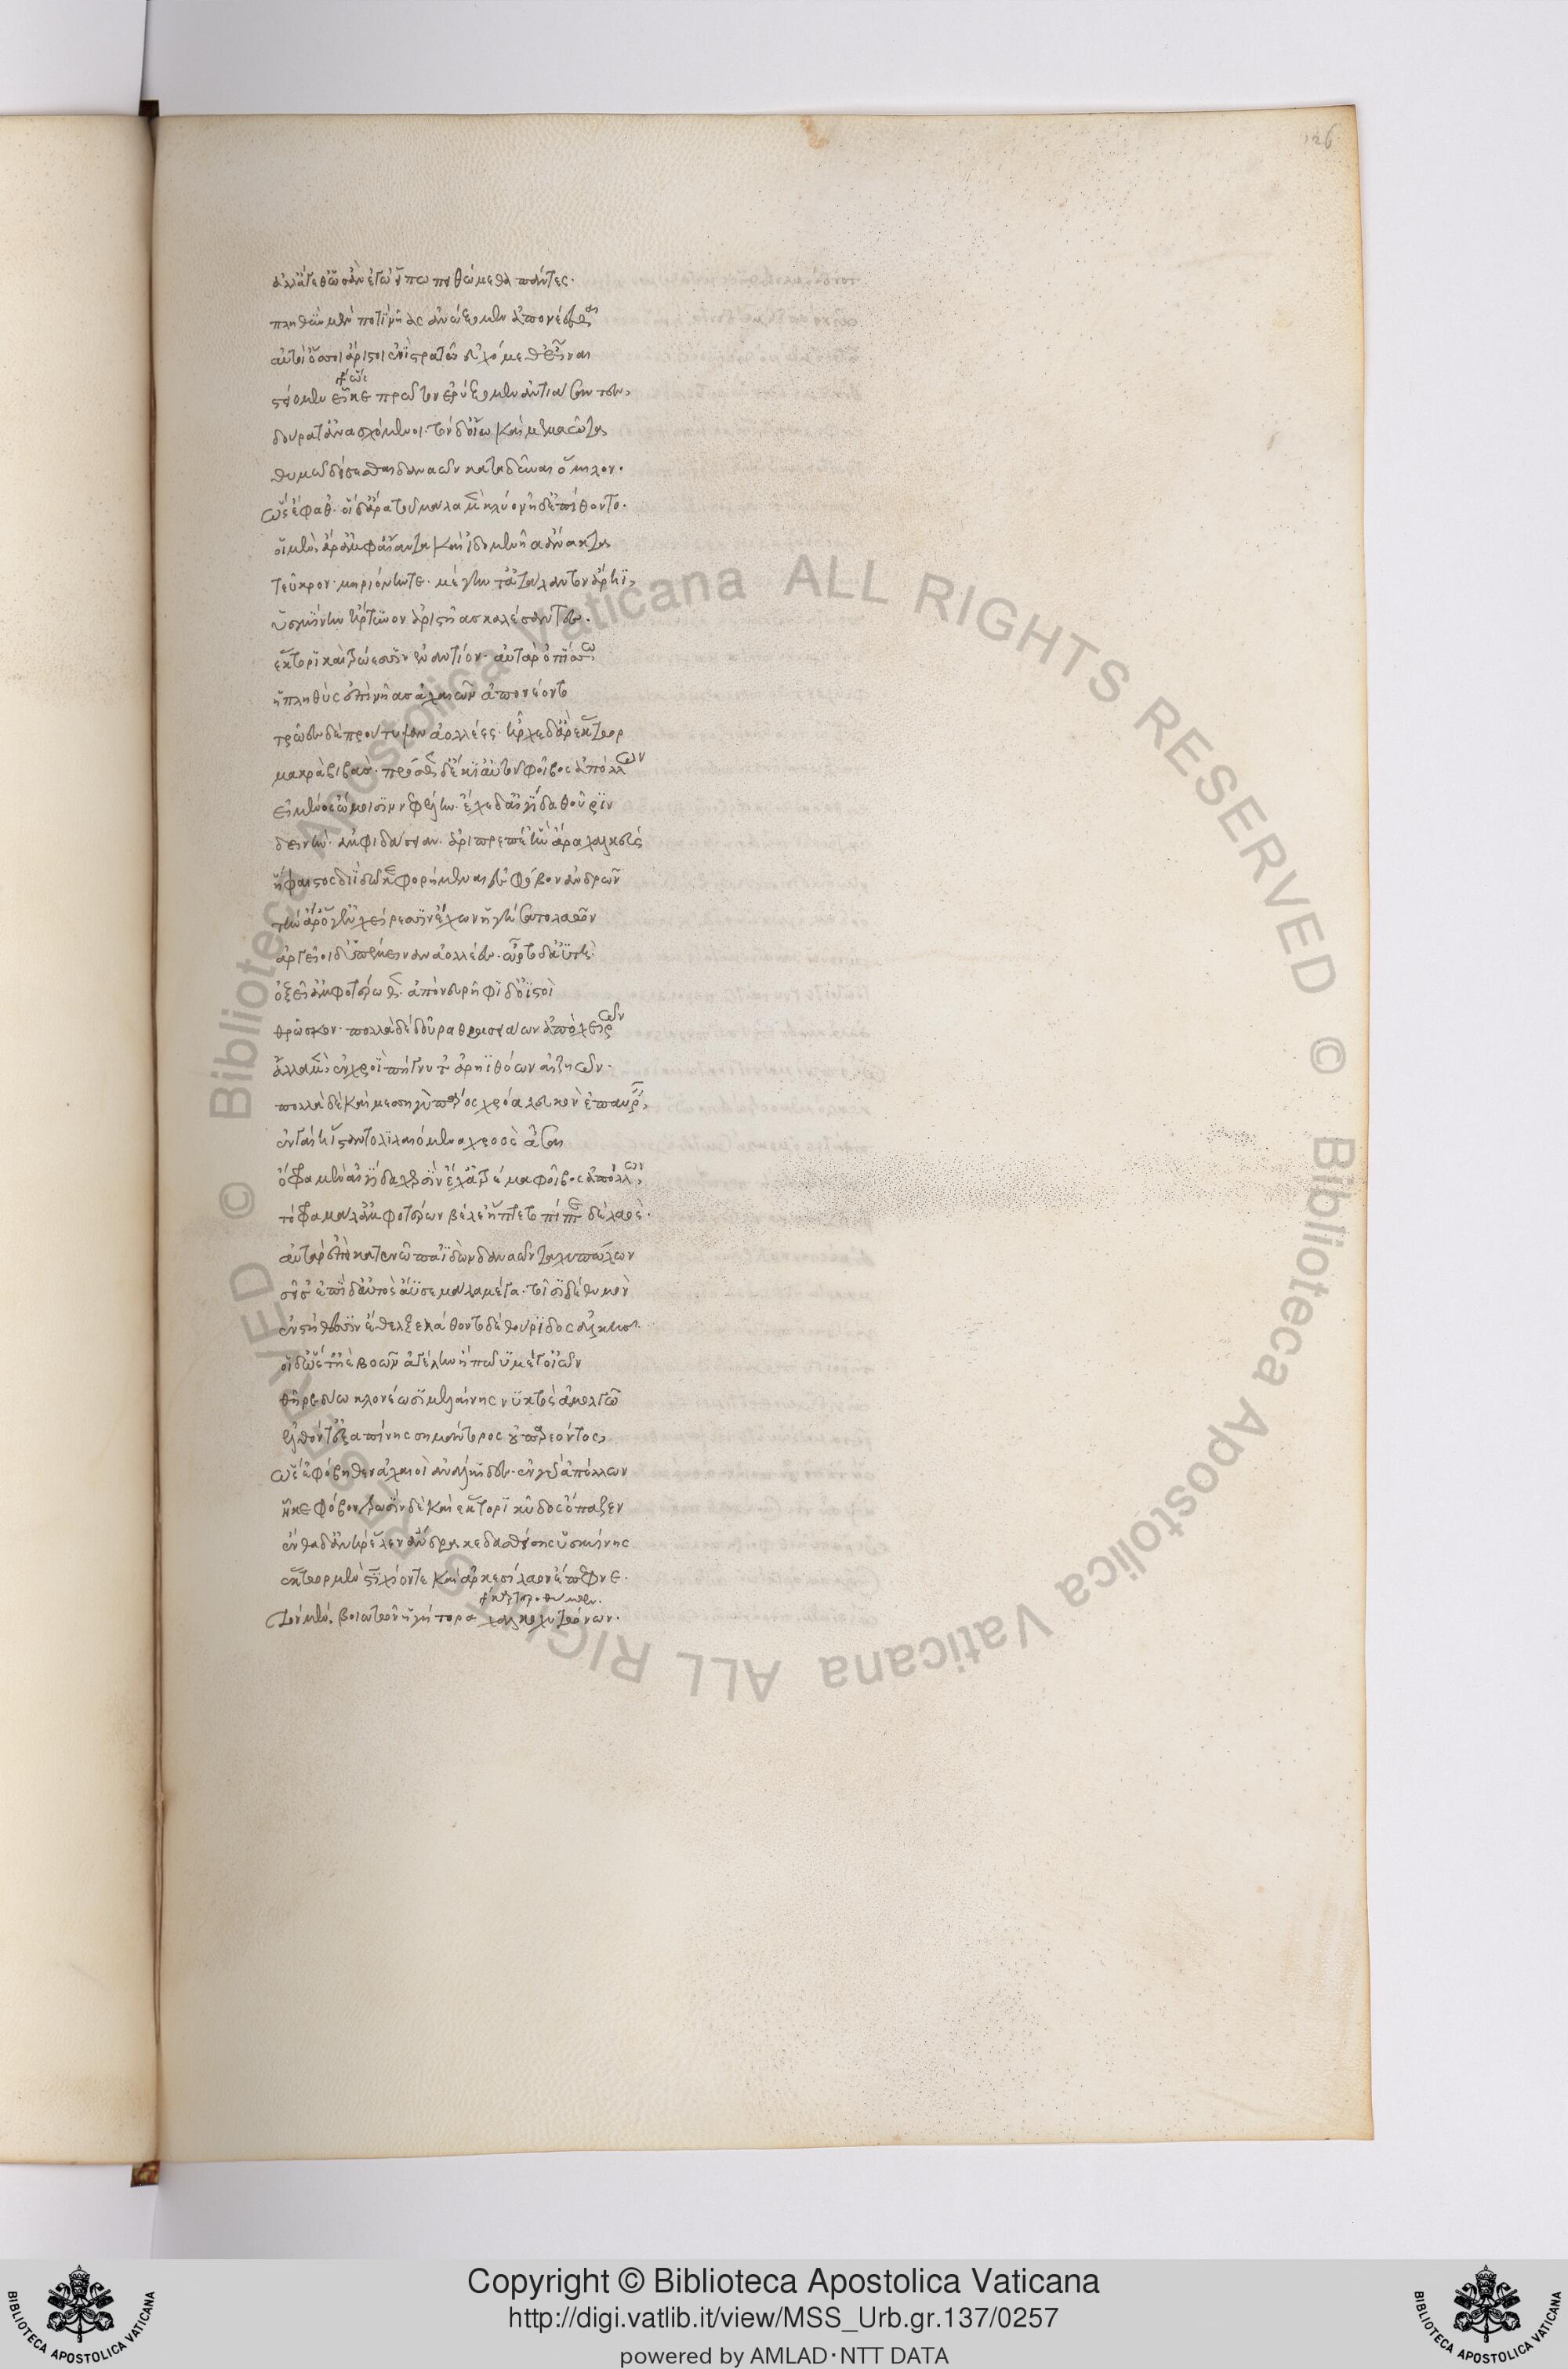 126
ἀλλ' ἄγεθ' ὡς ἂν ἐγὼν εἴπω πειθώμεθα πάντες.
πληθὺν μὲν ποτὶ νῆας ἀνώξομεν ἀπονέεσθαι
αὐτοὶ δ' ὅσσοι ἄριστοι ἐνὶ στρατῷ εὐχόμεθ' εἶναι
στείομεν εἴ κε πρῶτον ἐρύξομεν ἀντιάσαντες,
δούρατ' ἀνασχόμενοι. τὸν δ' οἴω καὶ μεμαῶτα
θυμῷ δείσεσθαι δαναῶν καταδῦναι ὅμιλον.
ὣς ἔφαθ'. οἱ δ' ἄρα τοῦ μάλα μὲν κλύον ἠδὲ πίθοντο.
οἱ μὲν ἄρ' ἀμφ' αἴαντα καὶ ἰδομενῆα ἄνακτα
τεῦκρον. μηριόνην τε. μέγην τ' ἀτάλαντον ἄρηϊ,
ὑσμίνην ἤρτυνον ἀριστῆας καλέσαντες.
ἕκτορι καὶ τρώεσσιν ἐναντίον. αὐτὰρ ὀπίσσω
ἡ πληθὺς ἐπὶ νῆας ἀχαιῶν ἀπονέοντο
τρῶες δὲ προύτυψαν ἀολλέες. ἦρχε δ' ἄρ' ἕκτωρ
μακρὰ βιβάς. πρόσθεν δὲ κί' αὐτοῦ φοῖβος ἀπόλλων
εἱμένος ὤμοισιν νεφέλην. ἔχε δ' αἰγίδα θοῦριν
δεινήν. ἀμφιδάσειαν. ἀριπρεπέ' ἣν ἄρα χαλκεὺς
ἥφαιστος διῒ δῶκε φορήμεναι ἐς φόβον ἀνδρῶν
τὴν ἄρ' ὅγ' ἐν χείρεσσιν ἔχων ἡγήσατο λαῶν
ἀργεῖοι δ' ὑπέμειναν ἀολλέες. ὦρτο δ' ἀϋτὴ
ὀξεῖ' ἀμφοτέρωθεν. ἀπὸ νευρῆφι δ' ὀϊστοὶ
θρῶσκον. πολλὰ δὲ δοῦρα θρασειάων ἀπὸ χειρῶν
ἄλλα μὲν ἐν χροῒ πήγνυτ' ἀρηϊθόων αἰζηῶν.
πολλὰ δὲ καὶ μεσσηγὺ πάρος χρόα λευκὸν ἐπαυρεῖν,
ἐν γαίῃ ἵσταντο λιλαιόμενα χροὸς ἆσαι
ὄφρα μὲν αἰγίδα χερσὶν ἔχ' ἀτρέμα φοῖβος ἀπόλλων,
τόφρα μάλ' ἀμφοτέρων βέλε' ἥπτετο πίπτε δὲ λαός.
αὐτὰρ ἐπεὶ κατενῶπα ἰδὼν δαναῶν ταχυπώλων
σεῖσ' ἐπὶ δ' αὐτὸς ἄϋσε μάλα μέγα. τοῖσι δὲ θυμὸν
ἐν στήθεσσιν ἔθελξε λάθοντο δὲ θούριδος ἀλκῆς.
οἱ δ' ὥς τ' ἠὲ βοῶν ἀγέλην ἢ πῶϋ μέγ' οἰῶν
θῆρε δύω κλονέωσι μελαίνης νυκτὸς ἀμολγῷ
ἐλθόντ' ἐξαπίνης σημάντορος οὐ παρεόντος,
ὣς ἐφόβηθεν ἀχαιοὶ ἀνάλκιδες. ἐν γὰρ ἀπόλλων
ἧκε φόβον τρωσὶν δὲ καὶ ἕκτορι κῦδος ὄπαζεν
ἔνθα δ' ἀνὴρ ἕλεν ἄνδρα κεδασθείσης ὑσμίνης
ἕκτωρ μὲν στιχίον τε καὶ ἀρκεσίλαον ἔπεφνε.
τὸν μὲν. βοιωτῶν ἡγήτορα χαλκοχιτώνων.